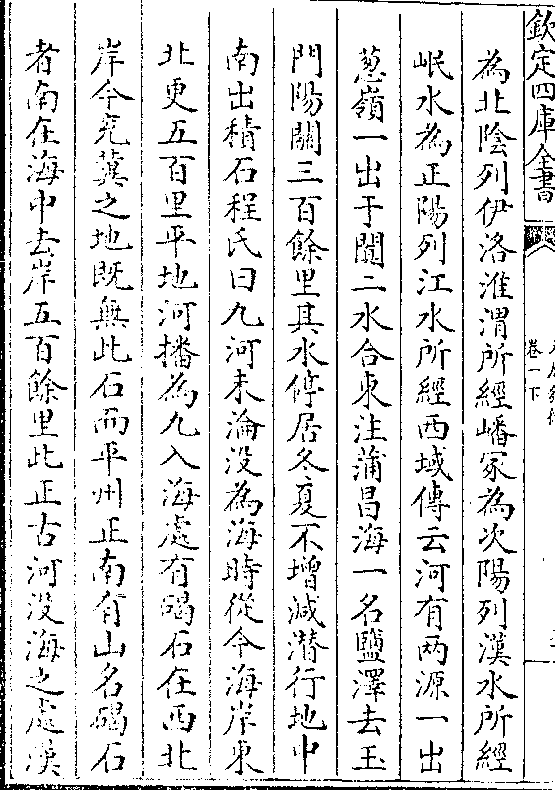 欽定四庫全書
卷一下
為北陰列伊洛淮渭所經嶓冢為次陽列漢水所經
岷水為正陽列江水所經西域傳云河有两源一出
葱嶺一出于闐二水合東注蒲昌海一名鹽澤去玉
門陽關三百餘里其水停居冬夏不增減潜行地中
南出積石程氏曰九河未淪没為海時從今海岸東
北更五百里平地河播為九入海處有碣石在西北
岸今兖冀之地既無此石而平州正南有山名碣石
者南在海中去岸五百餘里此正古河没海之處漢